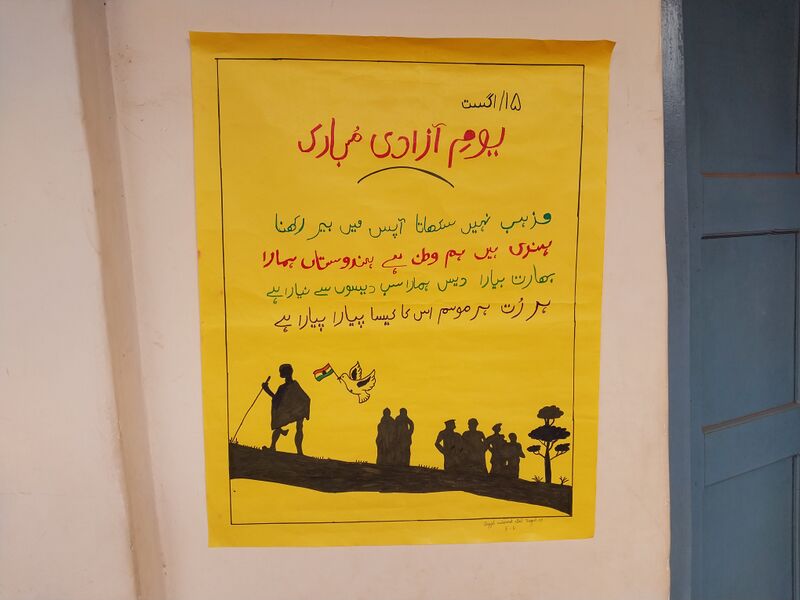 ۱۵/اگست
یومِ آزادی مُبارک
مذہب نہیں سکھاتا آپس میں بیر رکھنا
ہندی ہیں ہم وطن ہے ہندوستاں ہمارا
بھارت پیارا دیس ہمارا سب دیسوں سے نیارا ہے
ہر رُت ہر موسم اس کا کیسا پیارا پیارا ہے